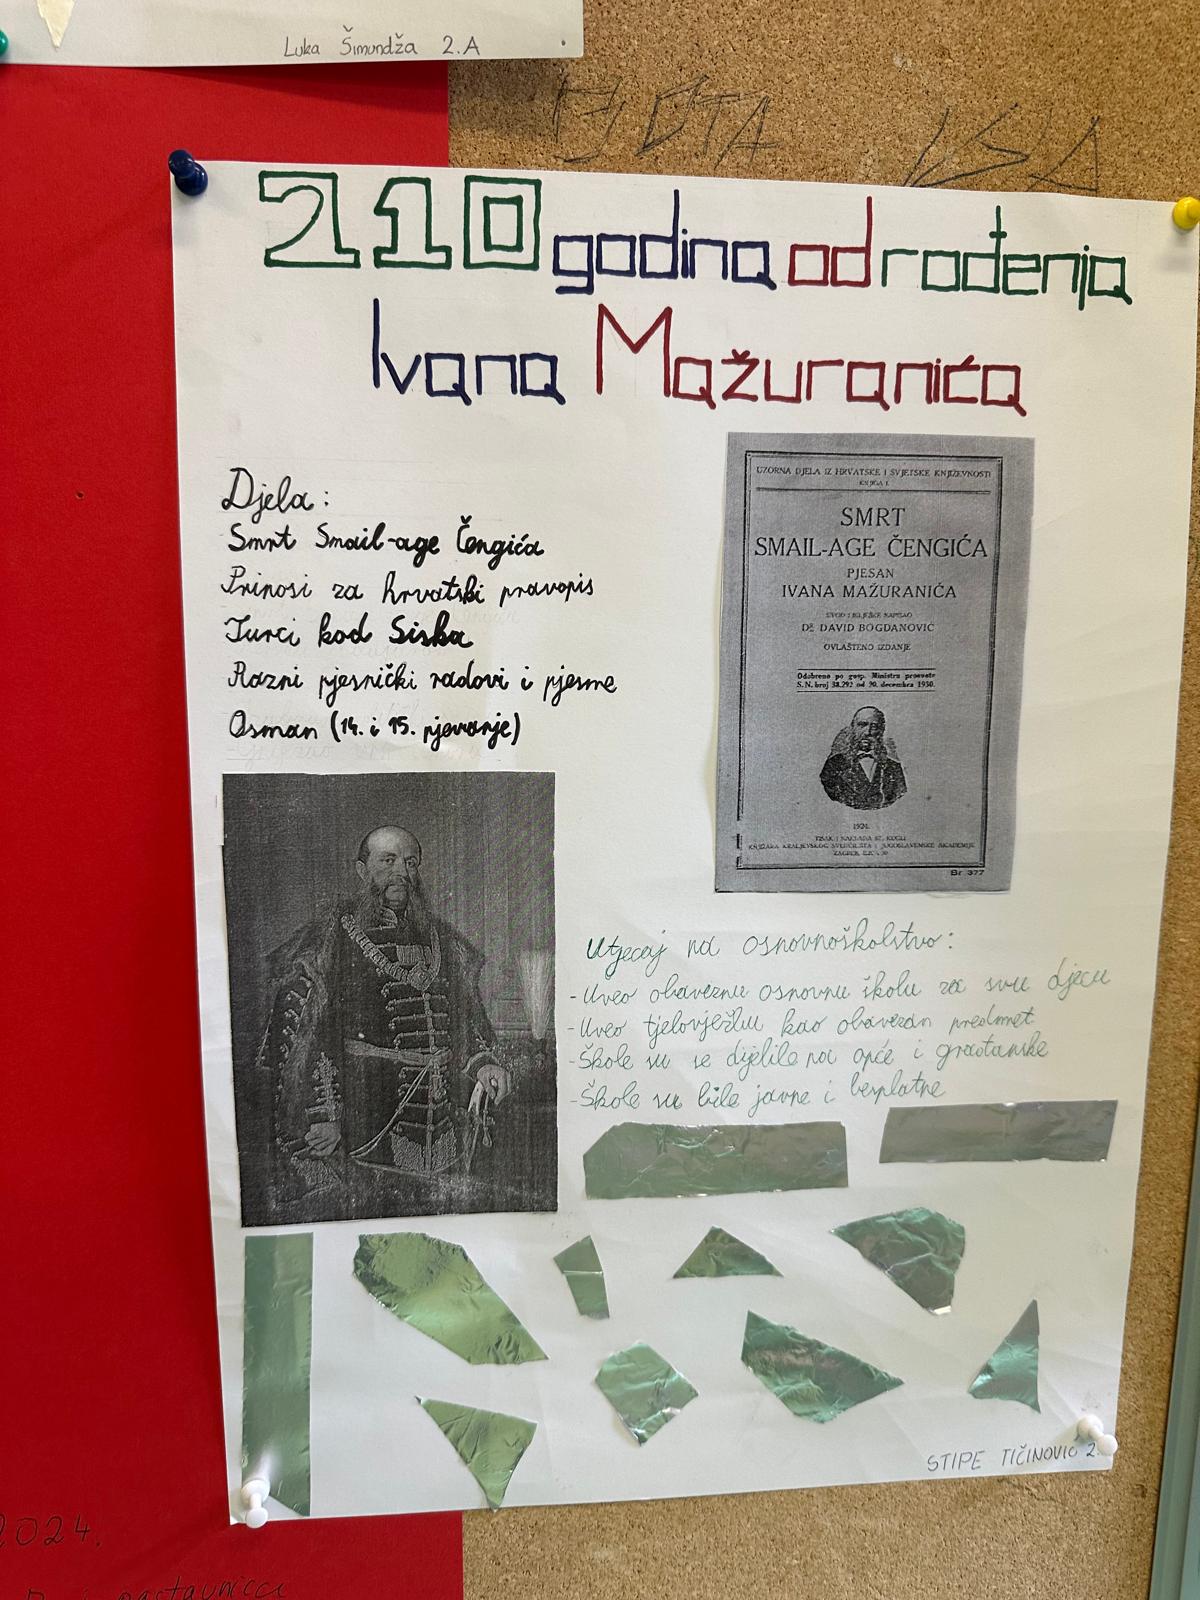 Luka Šimundža 2.A
210 godina od rođenja
Ivana Mažuranića
Djela:
Smrt Smail-age Čengića
Prinosi za hrvatski pravopis
Turci kod Siska
Razni pjesnički radovi i pjesme
Osman (14. i 15. pjevanje)
UZORNA DJELA IZ HRVATSKE I SVJETSKE KNJIŽEVNOSTI
KNJIGA I.
SMRT
SMAIL-AGE ČENGIĆA
PJESAN
IVANA MAŽURANIĆA
UVOD I BILJEŠKE NAPISAO
DR DAVID BOGDANOVIĆ
OVLAŠTENO IZDANJE
Odobreno po gosp. Ministru prosvete
S. N. broj 38.292 od 20. decembra 1930.
1924.
TISAK I NAKLADA ST. KUGLI
KNJIŽARA KRALJEVSKOG SVEUČILIŠTA I JUGOSLAVENSKE AKADEMIJE
ZAGREB, ILICA 30
Br 377
Utjecaj na osnovnoškolstvo:
-Uveo obaveznu osnovnu školu za svu djecu
-Uveo tjelovježbu kao obavezan predmet
-Škole su se dijelile na opće i građanske
-Škole su bile javne i besplatne
STIPE TIČINOVIĆ 2.
2024.
nastavnica